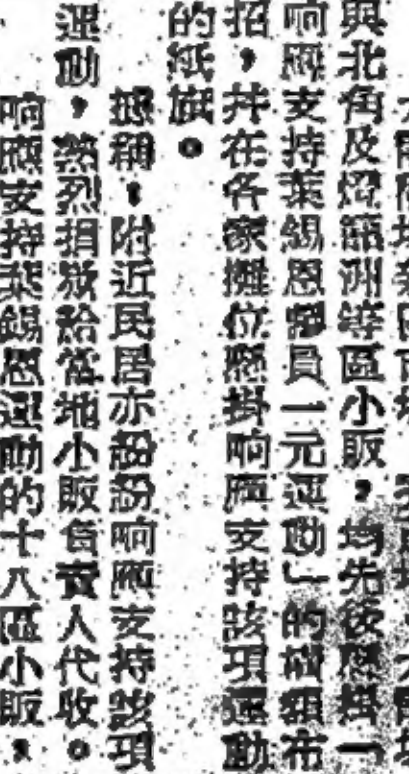 與北角及熠籬洲等區小販，均先後懸掛一
响應支持葉錫恩議員一元運動」的橫額布
招，并在各家攤位懸掛响應支持該項運動
的紙旗。
據稱，附近民居亦紛紛响應支持該項
運動，熱烈捐款給當地小販負責人代收。
响應支持葉錫恩運動的十八區小販，